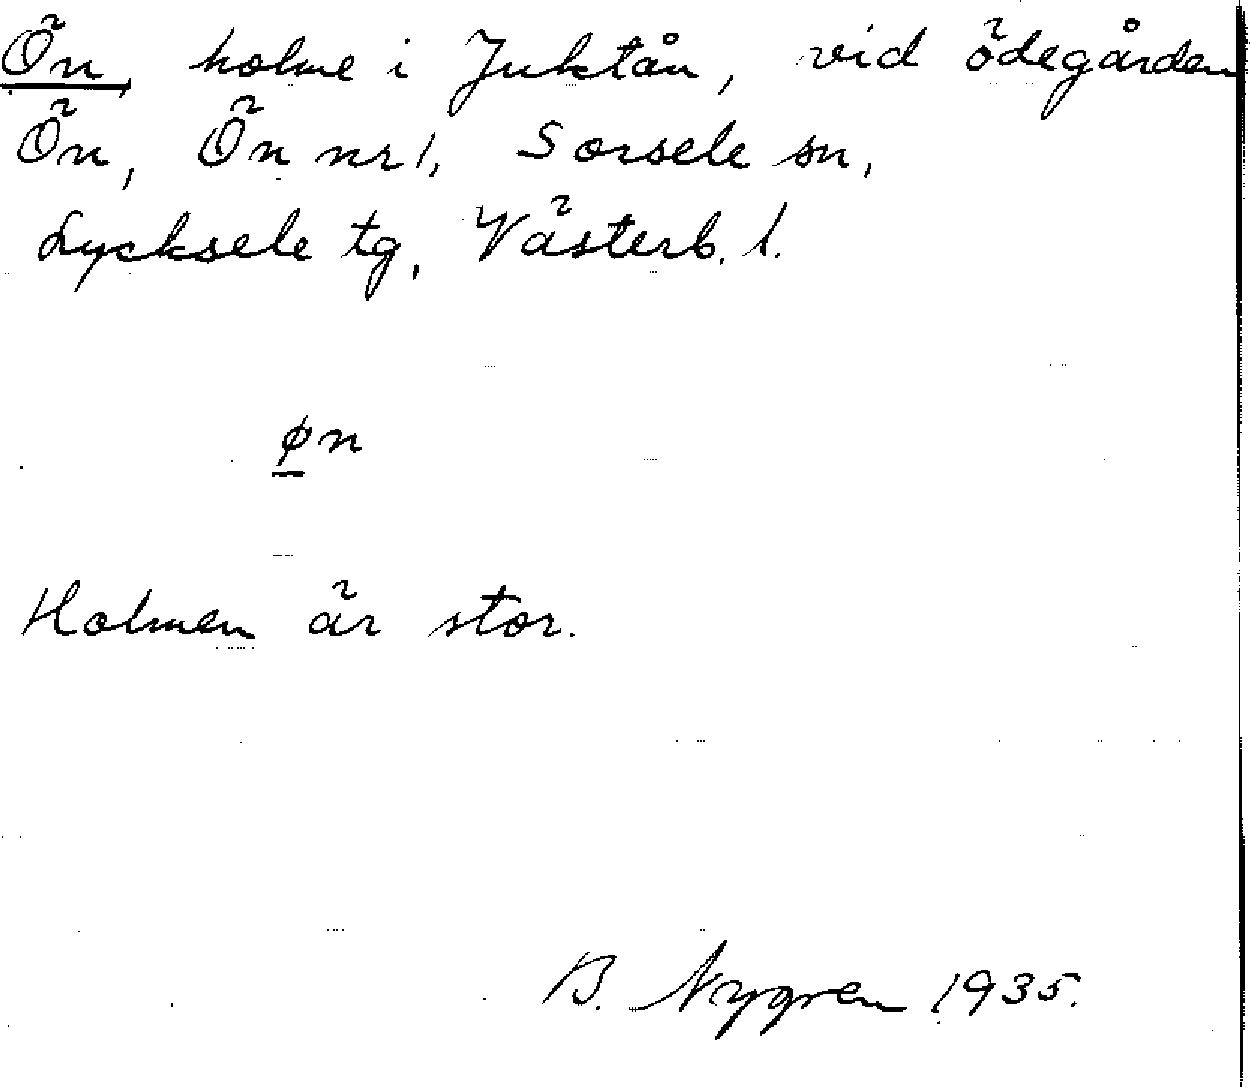 Ön, holme i Juktån, vid ödegården
Ön, Ön nr 1, Sorsele sn,
Lycksele tg, Västerb. l.
øn
Holmen är stor.
B. Nygren 1935.